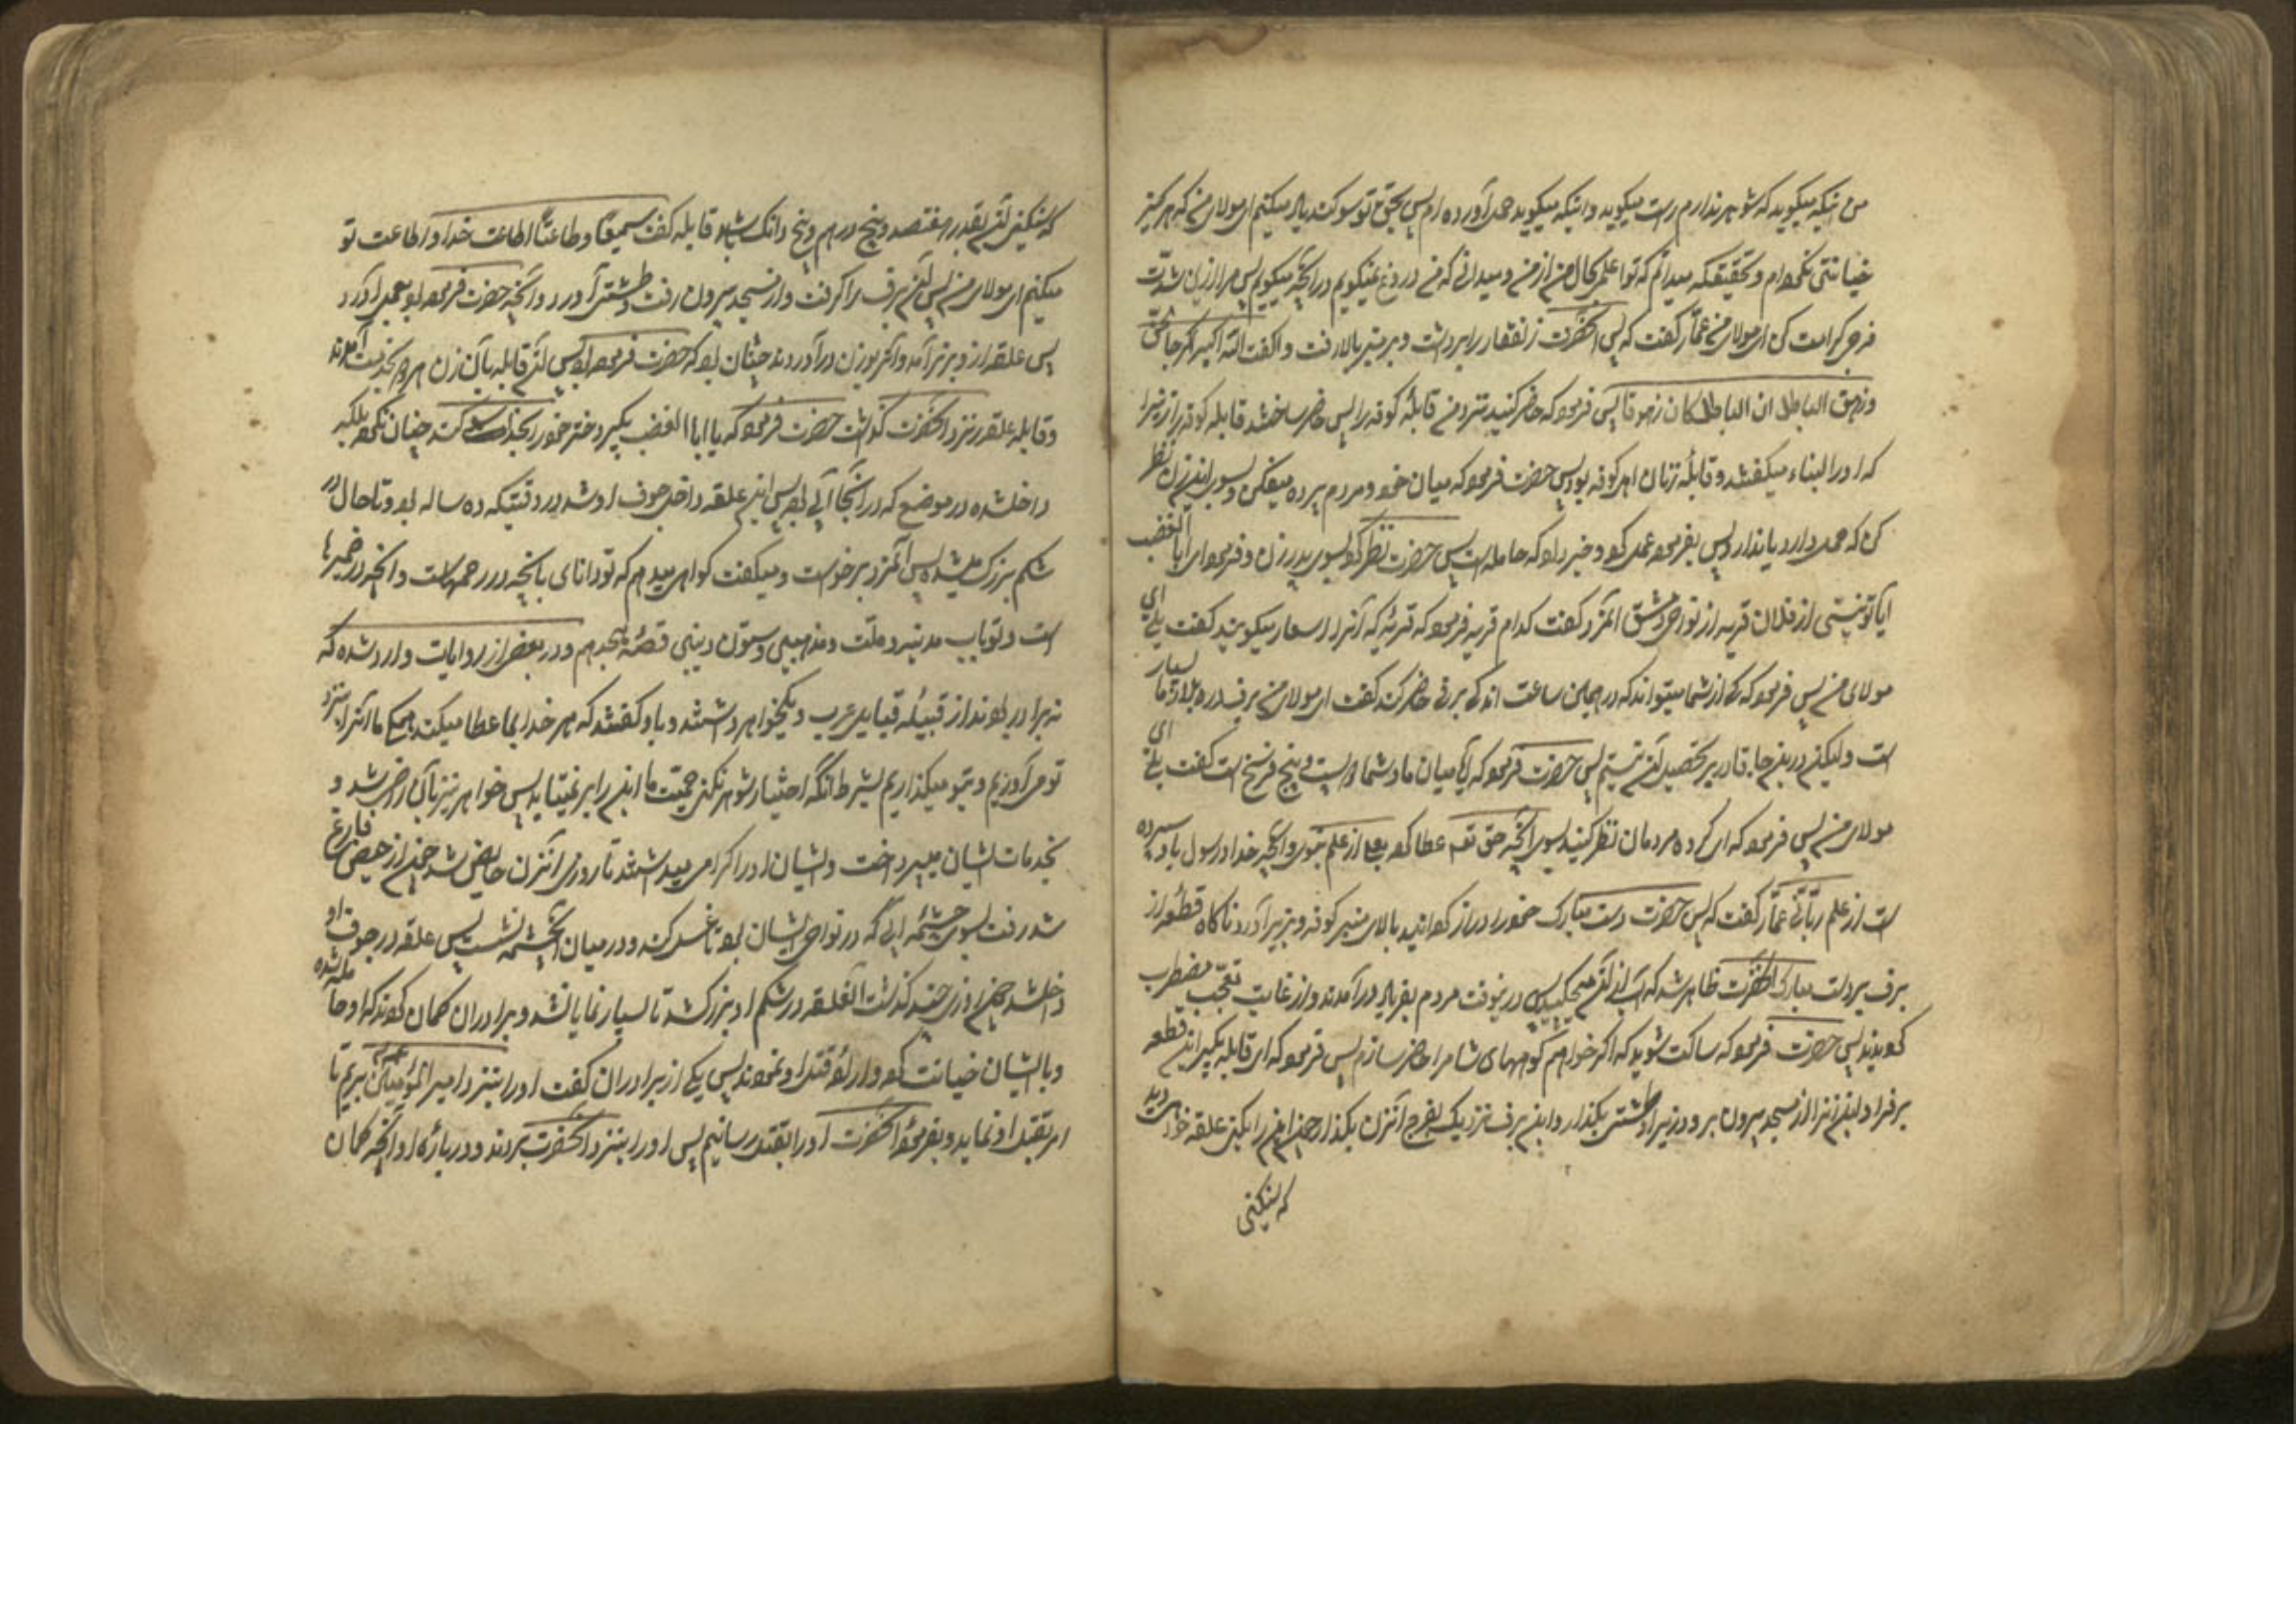 من اینکه میگوید که شوهر ندارم راست میگوید و اینکه میگوید حمل آورده ام پس بحق تو سوکند یاد میکنم ای مولای من که هرکز
خیانتی نکرده ام و بتحقیقکه میدانم که تو اعلمی بحال من از من و میدانی که من دروغ نمیکویم در آنچه میکویم پس مرا ازین شدت
فرجی کرامت کن ای مولای من عمار کفت که پس آنحضرت ذوالفقار را برداشت و بر منبر بالا رفت و کفت الله اکبر الله اکبر جاء الحق
وزهق الباطل ان الباطل کان زهوقا پس فرمود که حاضر کنید نزد من قابلهٔ کوفه را پس حاضر ساختند قابله کوفه را زنی را
که او را لبناء میکفتند و قابلهٔ زنان اهل کوفه بود پس حضرت فرمود که میان خود و مردم پرده میفکن و بسوی این زن نظر
کن که حمل دارد یا ندارد پس بفرموده عمل کرد و خبر داد که حامله است پس حضرت نظر کرد بسوی پدر زن و فرمود ای ابا الغضب
آیا تو نیستی از فلان قریه از نواحی دمشق آنمرد کفت کدام قریه فرمود که قریهٔ که آنرا اسعار میکویند کفت بلی ای
مولای من پس فرمود که کی از شما میتواند که در همین ساعت اندکی برفی حاضر کند کفت ای مولای من برف در بلاد ما بسیار
است ولیکن درینجا قادر بر تحصیل آن نیستم پس حضرت فرمود که آیا میان ما و شما دویست و پنج فرسخ است کفت بلی ای
مولای من پس فرمود که ای کروه مردمان نظر کنید بسوی آنچه حق تعالی عطا کرده بعلی از علم نبوی و آنچه خدا و رسول باو سپرده
است از علم ربانی عمار کفت که پس حضرت دست مبارک خود را دراز کردانید بالای منبر کوفه و بزیر آورد ناکاه قطعهٔ از
برف بر دست مبارک آنحضرت ظاهر شد که آب از آن میچکید پس درینوقت مردم بفریاد در آمدند و از غایت تعجب مضطرب
کردیدند پس حضرت فرمود که ساکت شوید که اکر خواهم کوههای شام را حاضر سازم پس فرمود که ای قابله بکیر این قطعه
برف را و این زنرا از مسجد بیرون بر و در زیر او طشتی بکذار و این برف نزدیک بفرج آنزن بکذار چون این را بکنی علقه خواهی دید
که سنکینی
که سنکینی آن بقدر هفتصد و پنج درهم و پنج دانک باشد قابله کفت سمعاً وطاعتاً اطاعت خدا و اطاعت تو
میکنم ای مولای من پس آن برف را کرفت و از مسجد بیرون رفت و طشتی آورد و آنچه حضرت فرموده بود بعمل آورد
پس علقه از و بزیر آمد و آنرا وزن در آوردند چنان بود که حضرت فرموده بود پس آن قابله با آن زن هر دو بخدمت آمدند
وقابله علقه را نزد آنحضرت کذاشت حضرت فرمود که یا ابا الغضب بکیر دختر خود را بخدا سوکند چنان نکرده بلکه
داخلشده در موضعی که در آنجا آبی بود پس این علقه داخل جوف او شد در وقتیکه ده ساله بود و تا حال در
شکم بزرک میشد پس آنمرد برخواست و میکفت کواهی میدهم که تو دانای بآنچه در رحمهاست و آنچه در ضمیرها
است و تو باب مدینه و ملت و مذهبی و ستون دینی قصهٔ هیجدهم و در بعضی از روایات وارد شده که
نه برادر بودند از قبیلهٔ قبایل عرب و یکخواهر داشتند و باو کفتند که هر چه خدا بما عطا میکند همکی ما آنرا نزد
تو می آوریم و بتو میکذاریم بشرط آنکه اختیار شوهر نکنی حمیت ما این را بر نمیتابد پس خواهر نیز بآن راضی شد و
بخدمات ایشان میپرداخت و ایشان او را کرامی میداشتند تا روزی آنزن حایض شد چون از حیض فارغ
شد رفت بسوی چشمه ابی که در نواحی ایشان بود تا غسل کند و در میان آنچشمه نشست پس علقه در جوف او
داخلشد چون روزی چند کذشت آنعلقه در شکم او بزرک شد تا بسیار نمایان شد و برادران کمان کردند که او حامله شده
و بایشان خیانت کرده و اراده قتل او نمودند پس یکی از برادران کفت او را بنزد امیر المؤمنین بریم تا
امر بقتل او نماید و بفرمودهٔ آنحضرت او را بقتل رسانیم پس او را بنزد آنحضرت بردند و دربارهٔ او آنچه کمان